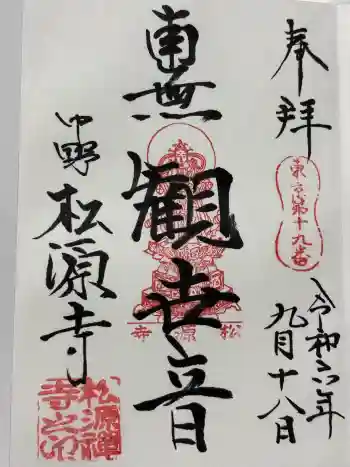 奉拝
東京第十九番
令和六年
九月十八日
南無観世音
松源寺
中野
松源寺
松源禅寺之印